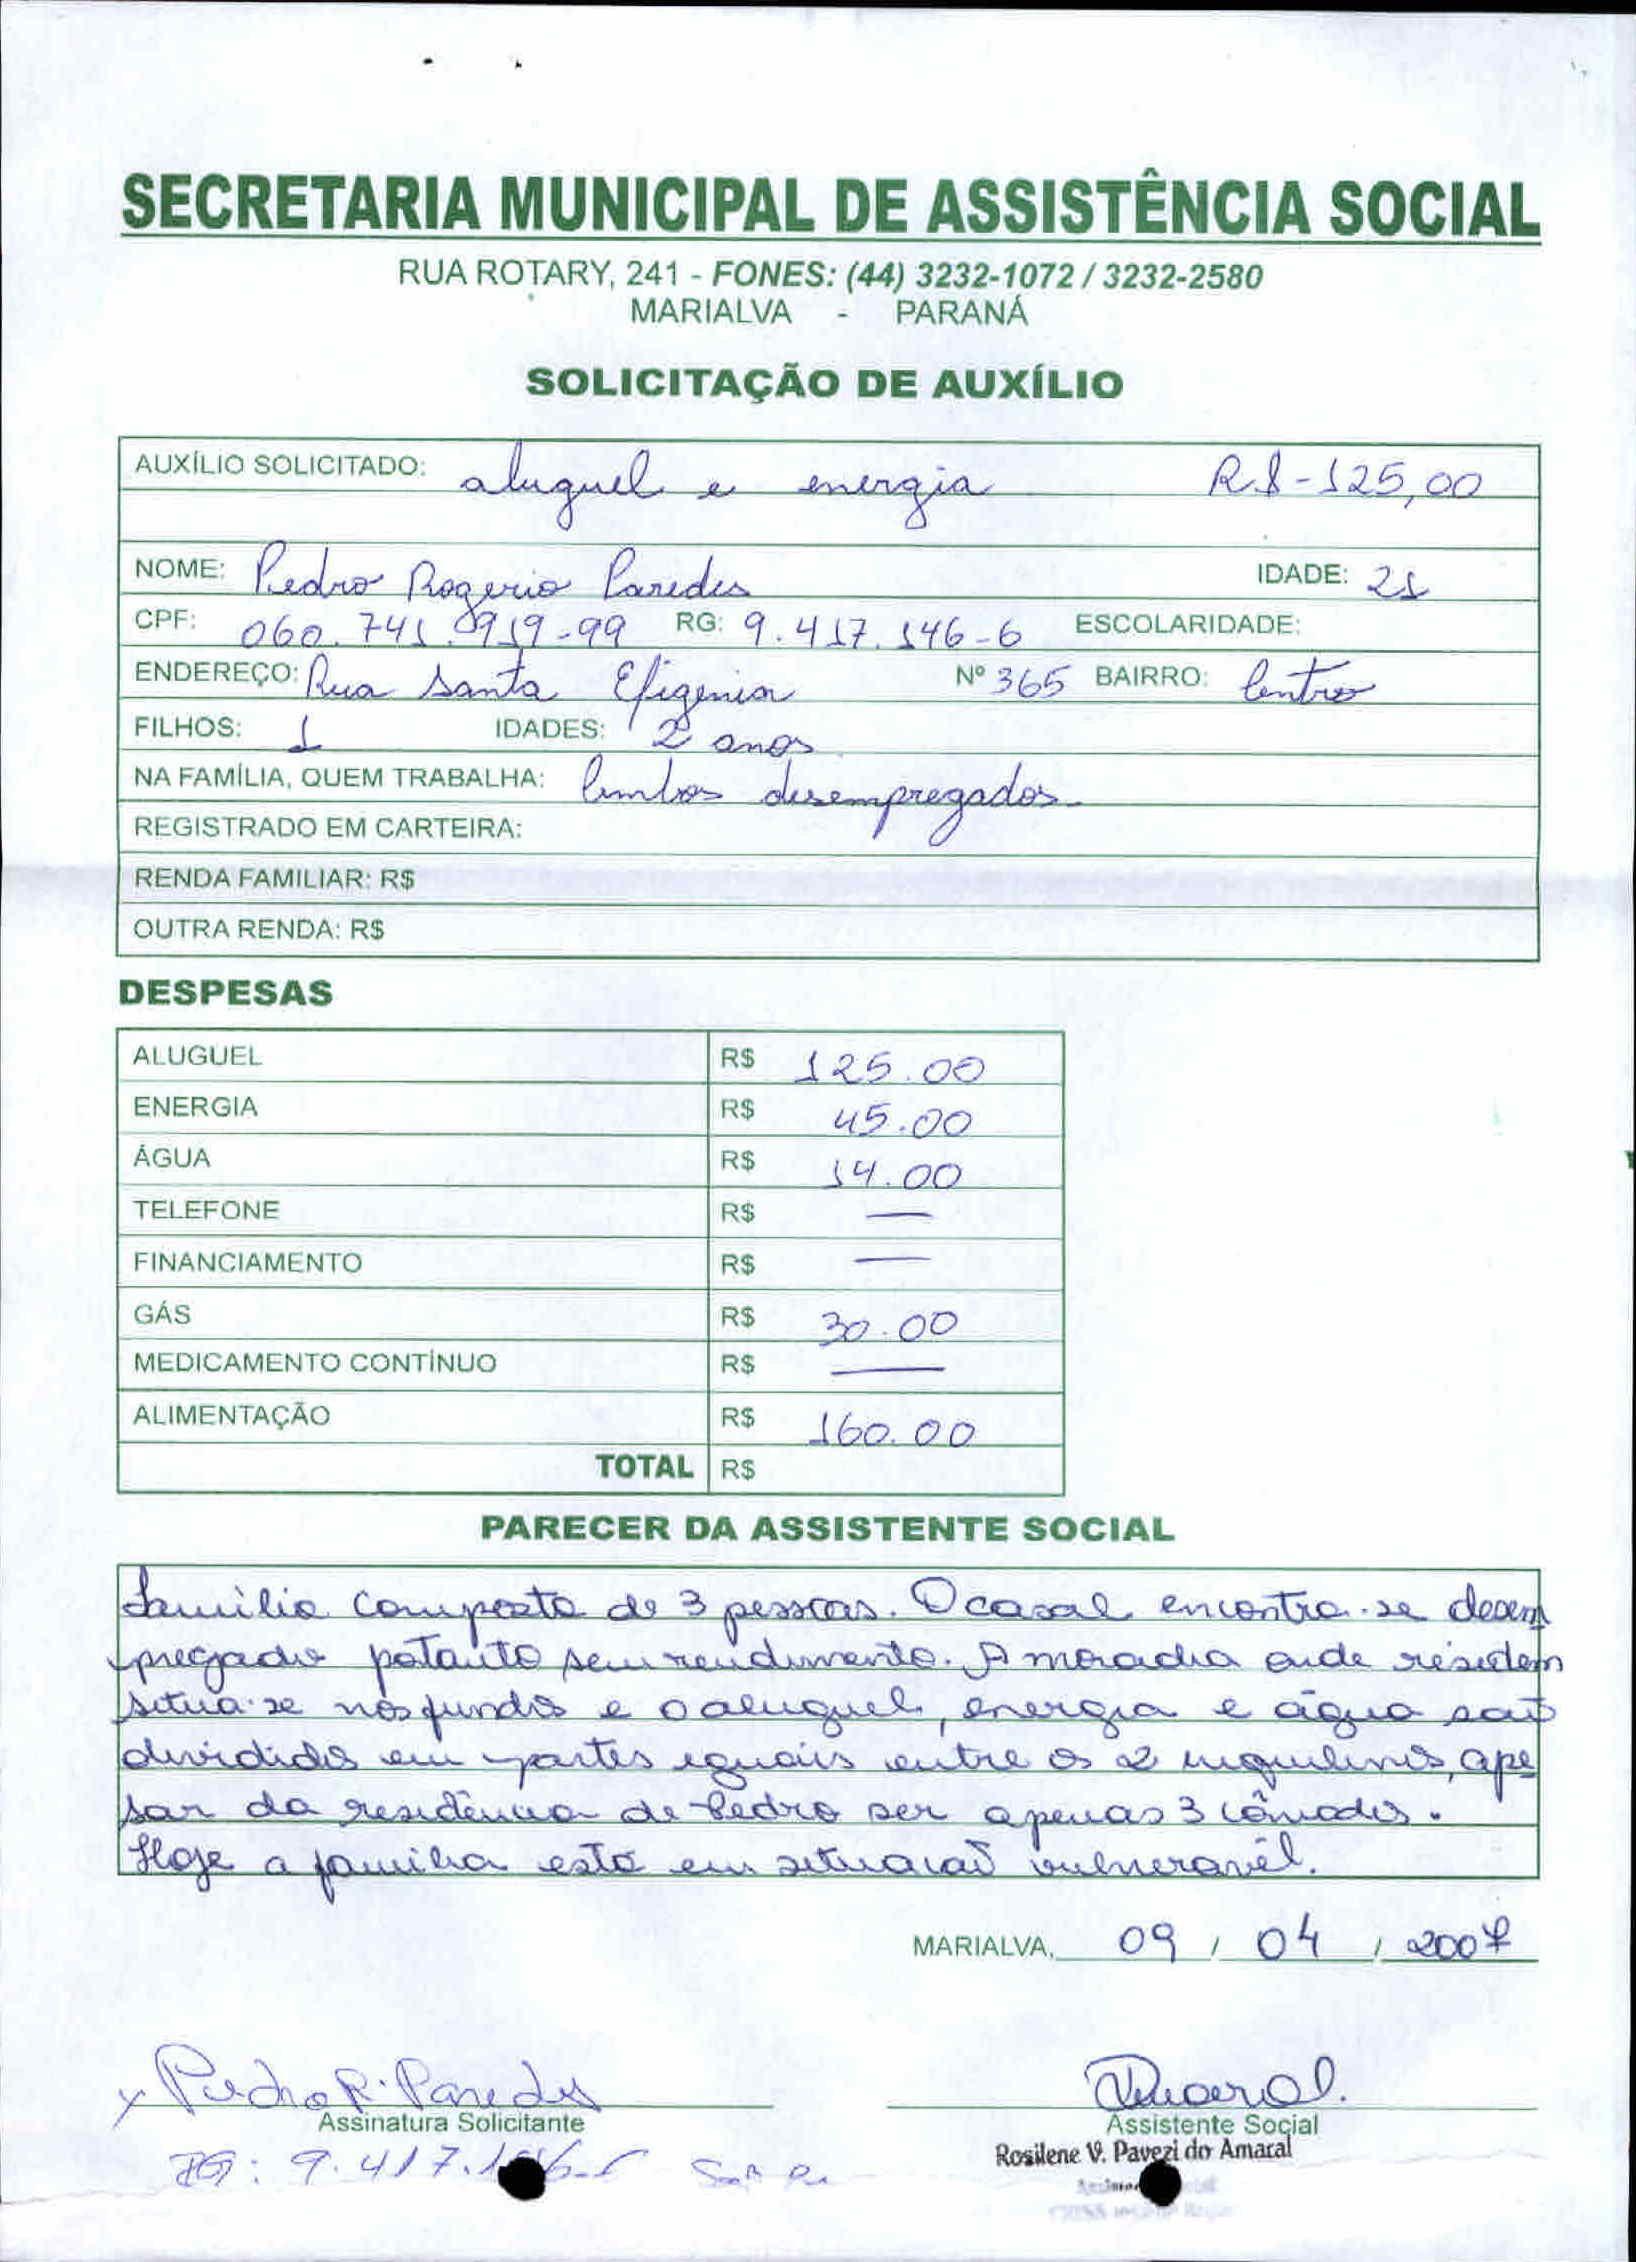 SECRETARIA MUNICIPAL DE ASSISTÊNCIA SOCIAL
RUA ROTARY, 241 - FONES: (44) 3232-1072 / 3232-2580
MARIALVA - PARANÁ
SOLICITAÇÃO DE AUXÍLIO
AUXÍLIO SOLICITADO: aluguel e energia R$-125,00
NOME: Pedro Rogerio Paredes IDADE: 21
CPF: 060.741.919-99 RG: 9.417.146-6 ESCOLARIDADE:
ENDEREÇO: Rua Santa Efigenia Nº 365 BAIRRO: Centro
FILHOS: 1 IDADES: 2 anos
NA FAMÍLIA, QUEM TRABALHA: Ambos desempregados
REGISTRADO EM CARTEIRA:
RENDA FAMILIAR: R$
OUTRA RENDA: R$
DESPESAS
ALUGUEL R$ 125.00
ENERGIA R$ 45.00
ÁGUA R$ 14.00
TELEFONE R$ —
FINANCIAMENTO R$ —
GÁS R$ 30.00
MEDICAMENTO CONTÍNUO R$ —
ALIMENTAÇÃO R$ 160.00
TOTAL R$
PARECER DA ASSISTENTE SOCIAL
Família composta de 3 pessoas. O casal encontra-se desem
pregado potanto sem rendimento. A moradia onde residem
situa-se nos fundos e o aluguel, energia e água são
dividido em partes iguais entre os 2 inquilinos, ape
sar da residência de Pedro ser apenas 3 cômodos.
Hoje a família está em situação vulneravél.
MARIALVA, 09 / 04 / 2007
x Pedro R. Paredes
Assinatura Solicitante
Amaral.
Assistente Social
Rosilene V. Pavezi do Amaral
RG: 9.417.146-6